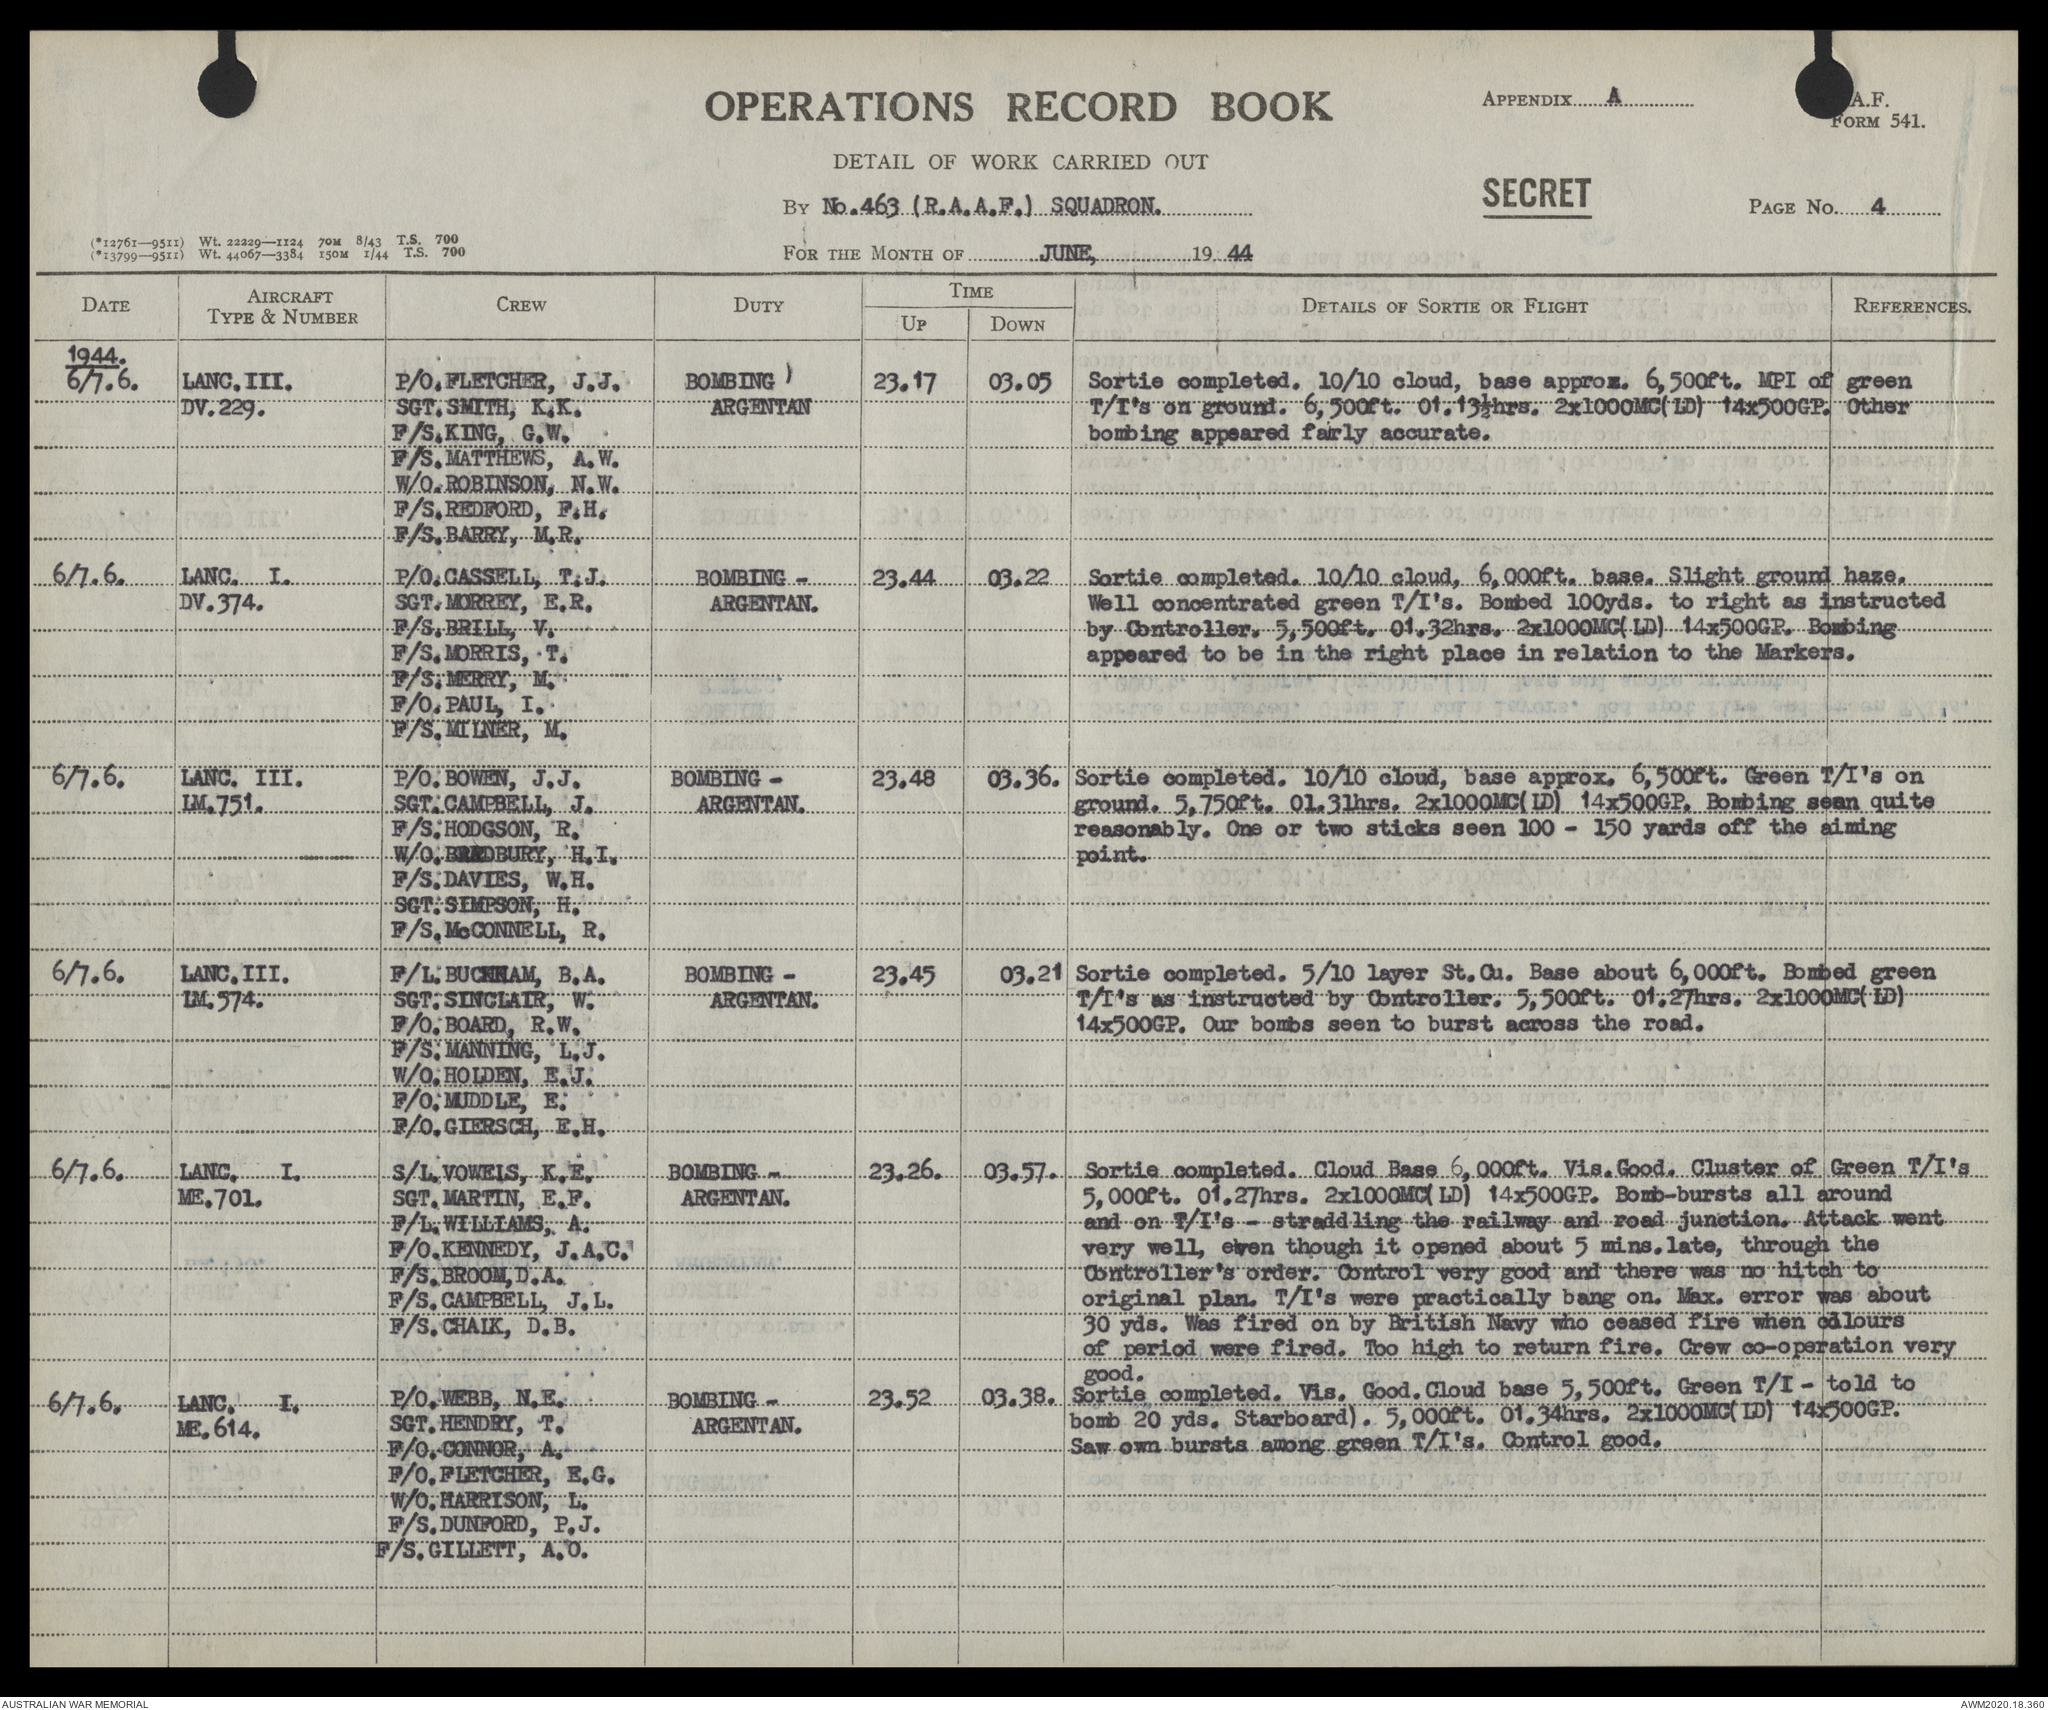 OPERATIONS RECORD BOOK
APPENDIX A
A.F.
FORM 541.
DETAIL OF WORK CARRIED OUT
SECRET
BY No.463 (R.A.A.F.) SQUADRON.
PAGE No. 4
(*12761—9511) Wt. 22229—1124 70M 8/43 T.S. 700
(*13799—9511) Wt. 44067—3384 150M 1/44 T.S. 700
FOR THE MONTH OF JUNE, 1944
DATE
AIRCRAFT
TYPE & NUMBER
CREW
DUTY
TIME
UP
DOWN
DETAILS OF SORTIE OR FLIGHT
REFERENCES.
1944.
6/7.6.
LANC.III.
DV.229.
P/O.FLETCHER, J.J.
SGT.SMITH, K.K.
F/S.KING, G.W.
F/S.MATTHEWS, A.W.
W/O.ROBINSON, N.W.
F/S.REDFORD, F.H.
F/S.BARRY, M.R.
BOMBING
ARGENTAN
23.17
03.05
Sortie completed. 10/10 cloud, base approx. 6,500ft. MPI of green
T/I's on ground. 6,500ft. 01.13½hrs. 2x1000MC(LD) 14x500GP. Other
bombing appeared fairly accurate.
6/7.6.
LANC. I.
DV.374.
P/O.CASSELL, T.J.
SGT.MORREY, E.R.
F/S.BRILL, V.
F/S.MORRIS, T.
F/S.MERRY, M.
F/O.PAUL, I.
F/S.MILNER, M.
BOMBING -
ARGENTAN.
23.44
03.22
Sortie completed. 10/10 cloud, 6,000ft. base. Slight ground haze.
Well concentrated green T/I's. Bombed 100yds. to right as instructed
by Controller. 5,500ft. 01.32hrs. 2x1000MC(LD) 14x500GP. Bombing
appeared to be in the right place in relation to the Markers.
6/7.6.
LANC. III.
LM.751.
P/O.BOWEN, J.J.
SGT.CAMPBELL, J.
F/S.HODGSON, R.
W/O.BRADBURY, H.I.
F/S.DAVIES, W.H.
SGT.SIMPSON, H.
F/S.McCONNELL, R.
BOMBING -
ARGENTAN.
23.48
03.36.
Sortie completed. 10/10 cloud, base approx. 6,500ft. Green T/I's on
ground. 5,750ft. 01.31hrs. 2x1000MC(LD) 14x500GP. Bombing seen quite
reasonably. One or two sticks seen 100 - 150 yards off the aiming
point.
6/7.6.
LANC.III.
LM.574.
F/L.BUCKHAM, B.A.
SGT.SINCLAIR, W.
F/O.BOARD, R.W.
F/S.MANNING, L.J.
W/O.HOLDEN, E.J.
F/O.MUDDLE, E.
F/O.GIERSCH, E.H.
BOMBING -
ARGENTAN.
23.45
03.21
Sortie completed. 5/10 layer St.Cu. Base about 6,000ft. Bombed green
T/I's as instructed by Controller. 5,500ft. 01.27hrs. 2x1000MC(LD)
14x500GP. Our bombs seen to burst across the road.
6/7.6.
LANC. I.
ME.701.
S/L.VOWELS, K.E.
SGT.MARTIN, E.F.
F/L.WILLIAMS, A.
F/O.KENNEDY, J.A.C.
F/S.BROOM,D.A.
F/S.CAMPBELL, J.L.
F/S.CHALK, D.B.
BOMBING -
ARGENTAN.
23.26.
03.57.
Sortie completed. Cloud Base 6,000ft. Vis.Good. Cluster of Green T/I's
5,000ft. 01.27hrs. 2x1000MC(LD) 14x500GP. Bomb-bursts all around
and on T/I's - straddling the railway and road junction. Attack went
very well, even though it opened about 5 mins.late, through the
Controller's order. Control very good and there was no hitch to
original plan. T/I's were practically bang on. Max. error was about
30 yds. Was fired on by British Navy who ceased fire when colours
of period were fired. Too high to return fire. Crew co-operation very
good.
6/7.6.
LANC. I.
ME.614.
P/O.WEBB, N.E.
SGT.HENDRY, T.
F/O.CONNOR, A.
F/O.FLETCHER, E.G.
W/O.HARRISON, L.
F/S.DUNFORD, P.J.
F/S.GILLETT, A.O.
BOMBING -
ARGENTAN.
23.52
03.38.
Sortie completed. Vis. Good.Cloud base 5,500ft. Green T/I - told to
bomb 20 yds. Starboard). 5,000ft. 01.34hrs. 2x1000MC(LD) 14x500GP.
Saw own bursts among green T/I's. Control good.
AUSTRALIAN WAR MEMORIAL
AWM2020.18.360